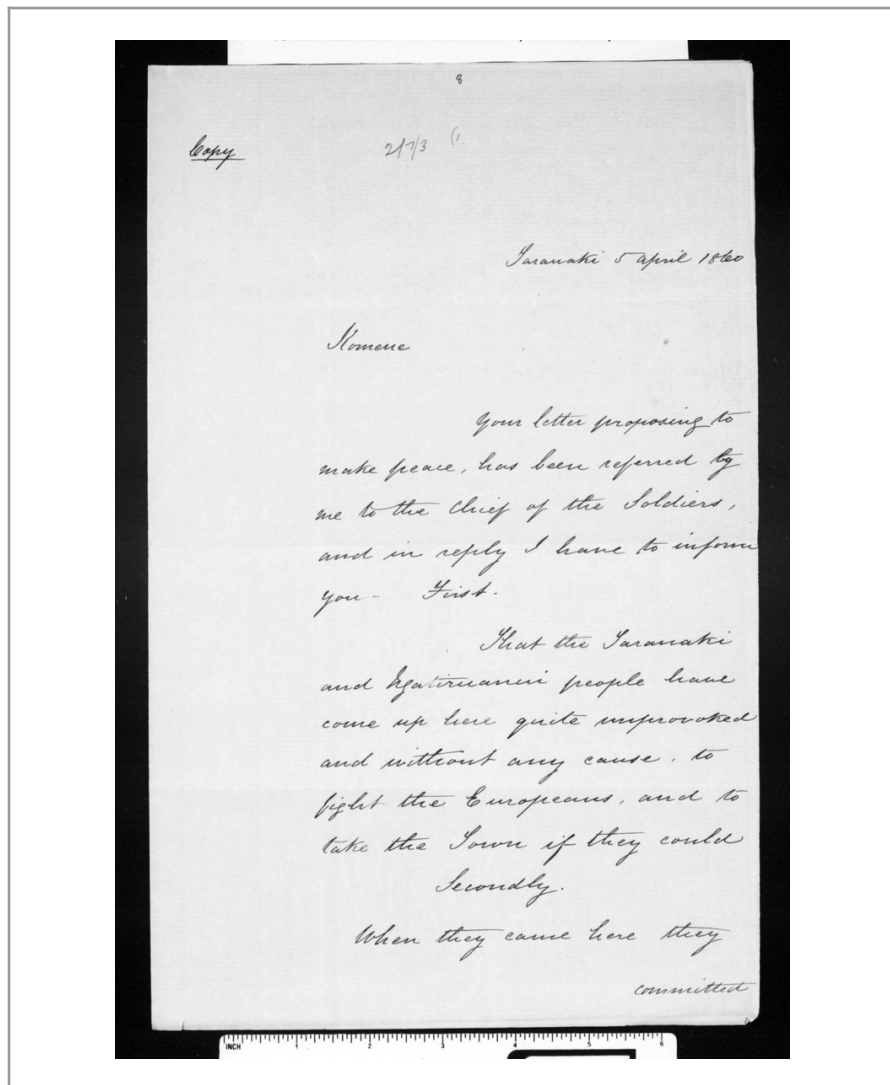 8
Copy
217/3
Taranaki 5 April 1860
Komene
Your letter proposing to
make peace, has been referred by
me to the Chief of the Soldiers,
and in reply I have to inform
you - First.
That the Taranaki
and Ngatiruanui people have
come up here quite unprovoked
and without any cause, to
fight the Europeans, and to
take the Town if they could
Secondly.
When they came here they
committed
INCH 1 2 3 4 5 6